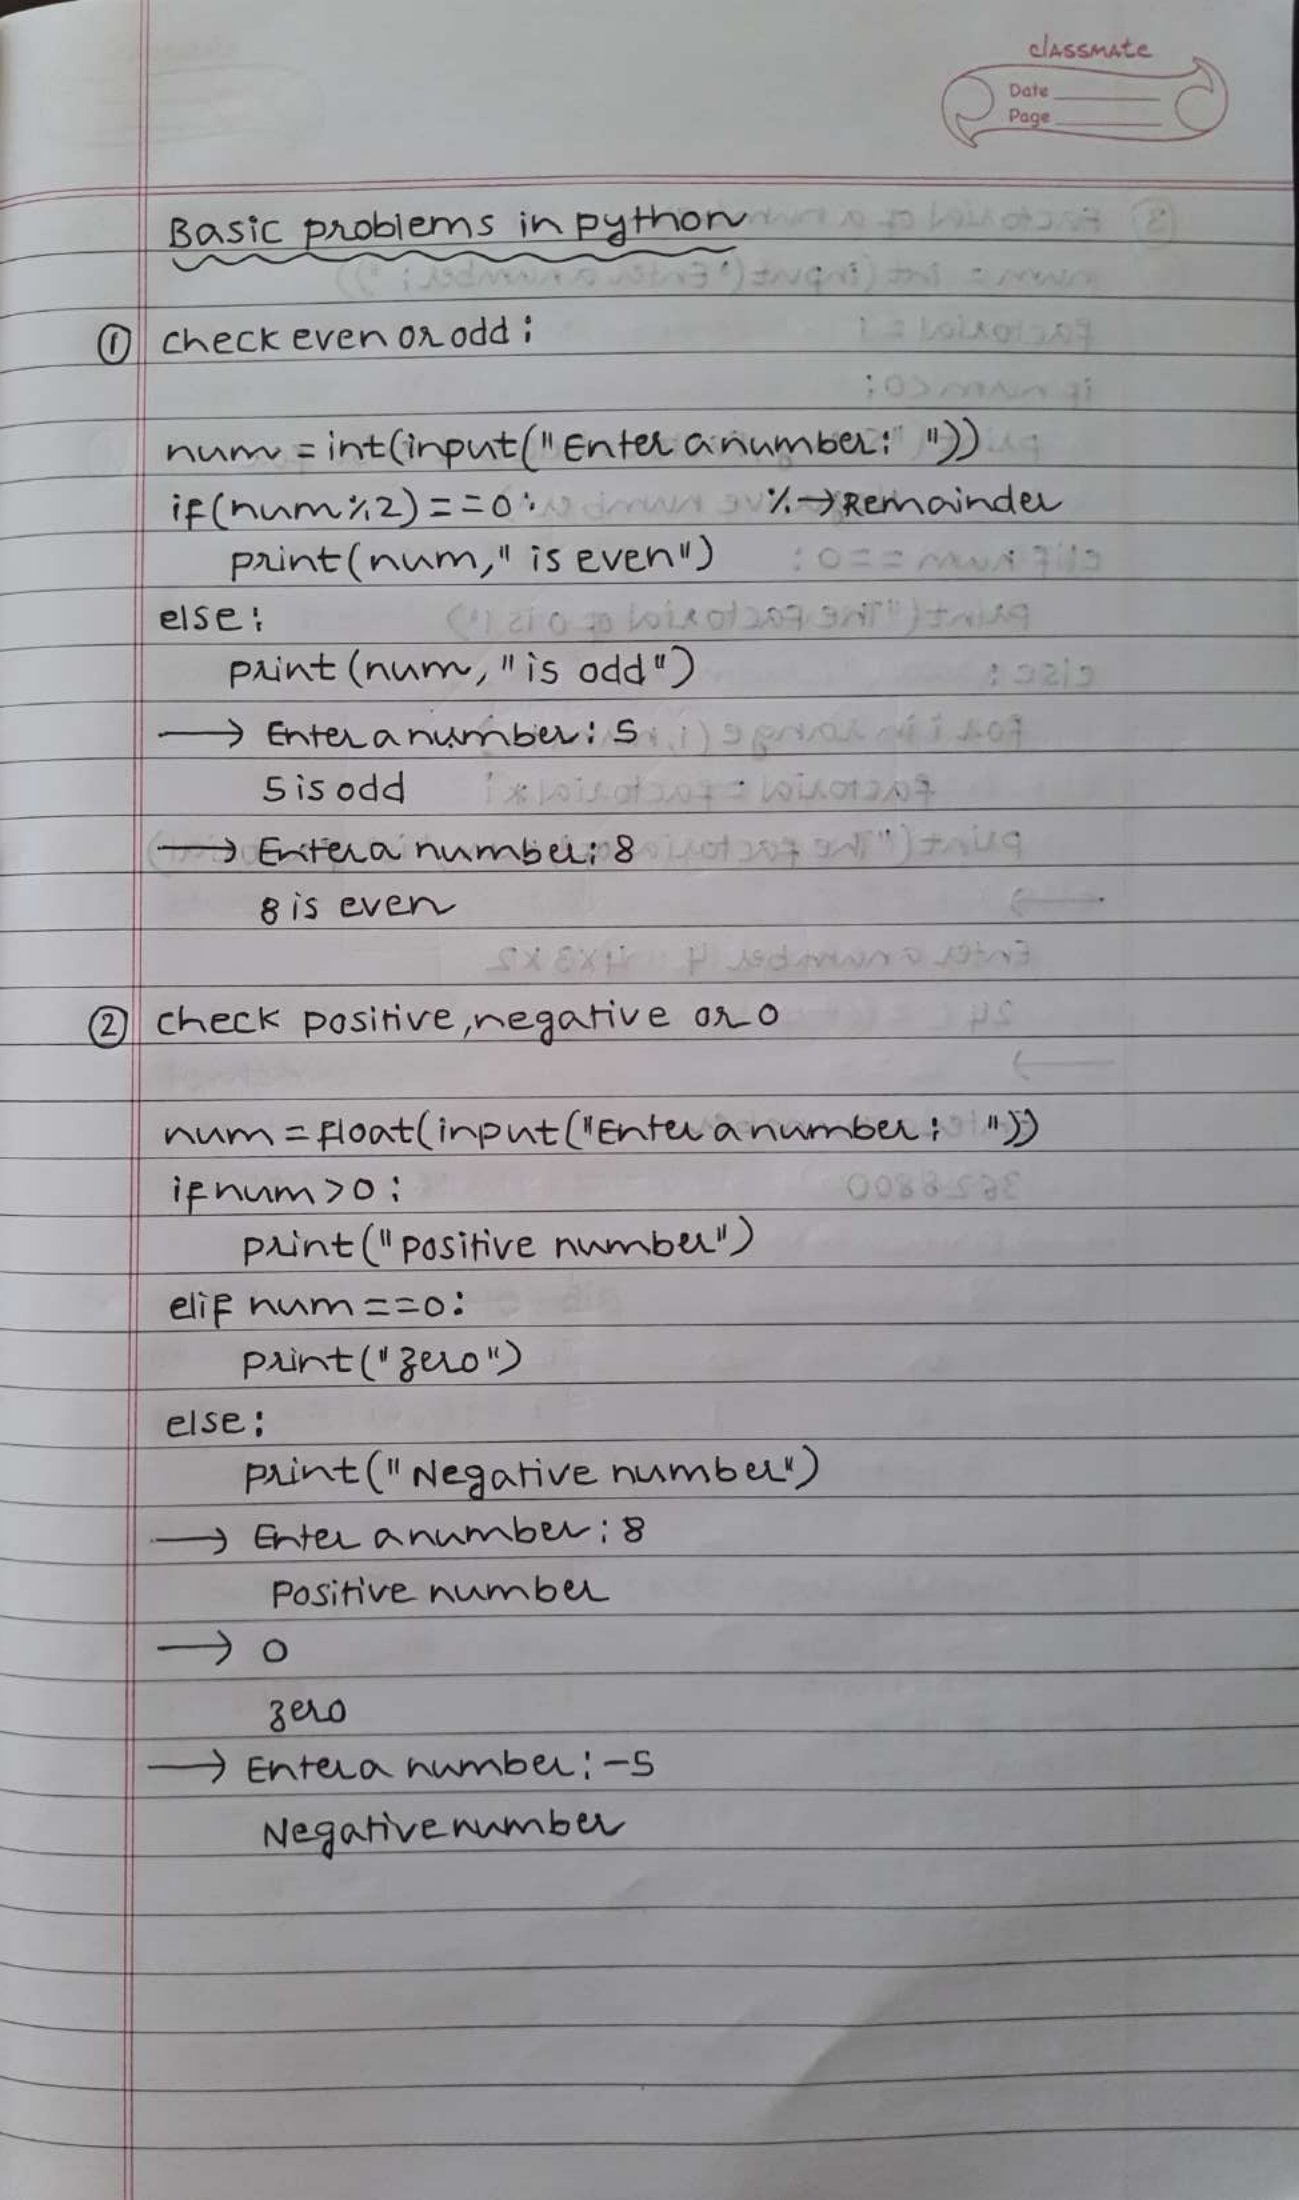 classmate
Date
Page
Basic problems in python
① check even or odd :
num = int(input("Enter a number: "))
if(num%2)==0: %→Remainder
print(num," is even")
else:
print(num, "is odd")
→ Enter a number: 5
5 is odd
→ Enter a number: 8
8 is even
② check positive, negative or 0
num = float(input("Enter a number: "))
if num > 0 :
print("positive number")
elif num ==0:
print("zero")
else:
print("Negative number")
→ Enter a number: 8
Positive number
→ 0
zero
→ Enter a number: -5
Negative number